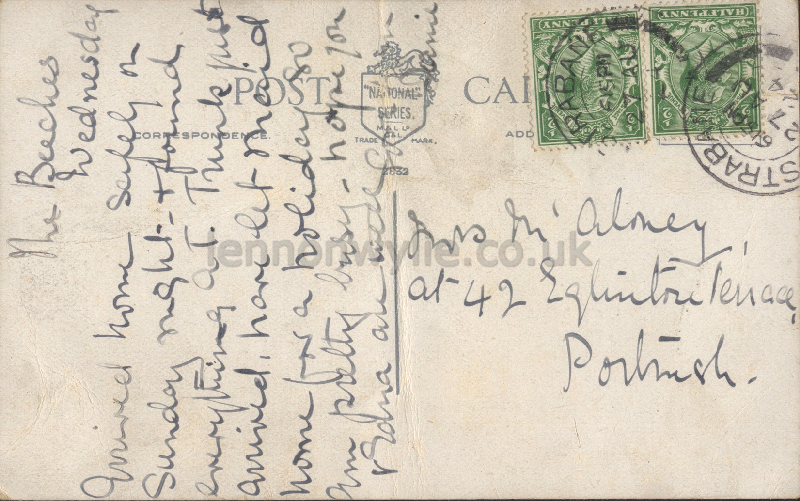 POST CARD
"NATIONAL" SERIES.
M & L Ltd
TRADE MARK.
2833
CORRESPONDENCE.
The Beeches
Wednesday
Arrived home safely on
Sunday night - & found
everything A1. Trunk just
arrived, have let maid
home for a holiday so
am pretty busy - hope you
& Edna are well
Mrs McAloney,
at 42 Eglinton Terrace,
Portrush.
HALFPENNY
HALFPENNY
STRABANE
STRABANE
lennonwylie.co.uk